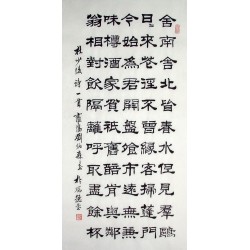 舍南舍北皆春水但見羣鷗
日〻來花徑不曾緣客掃蓬門
今始為君開盤飧市遠無兼
味樽酒家貧只舊醅肯與鄰
翁相對飲隔籬呼取盡餘杯
杜少陵詩一首